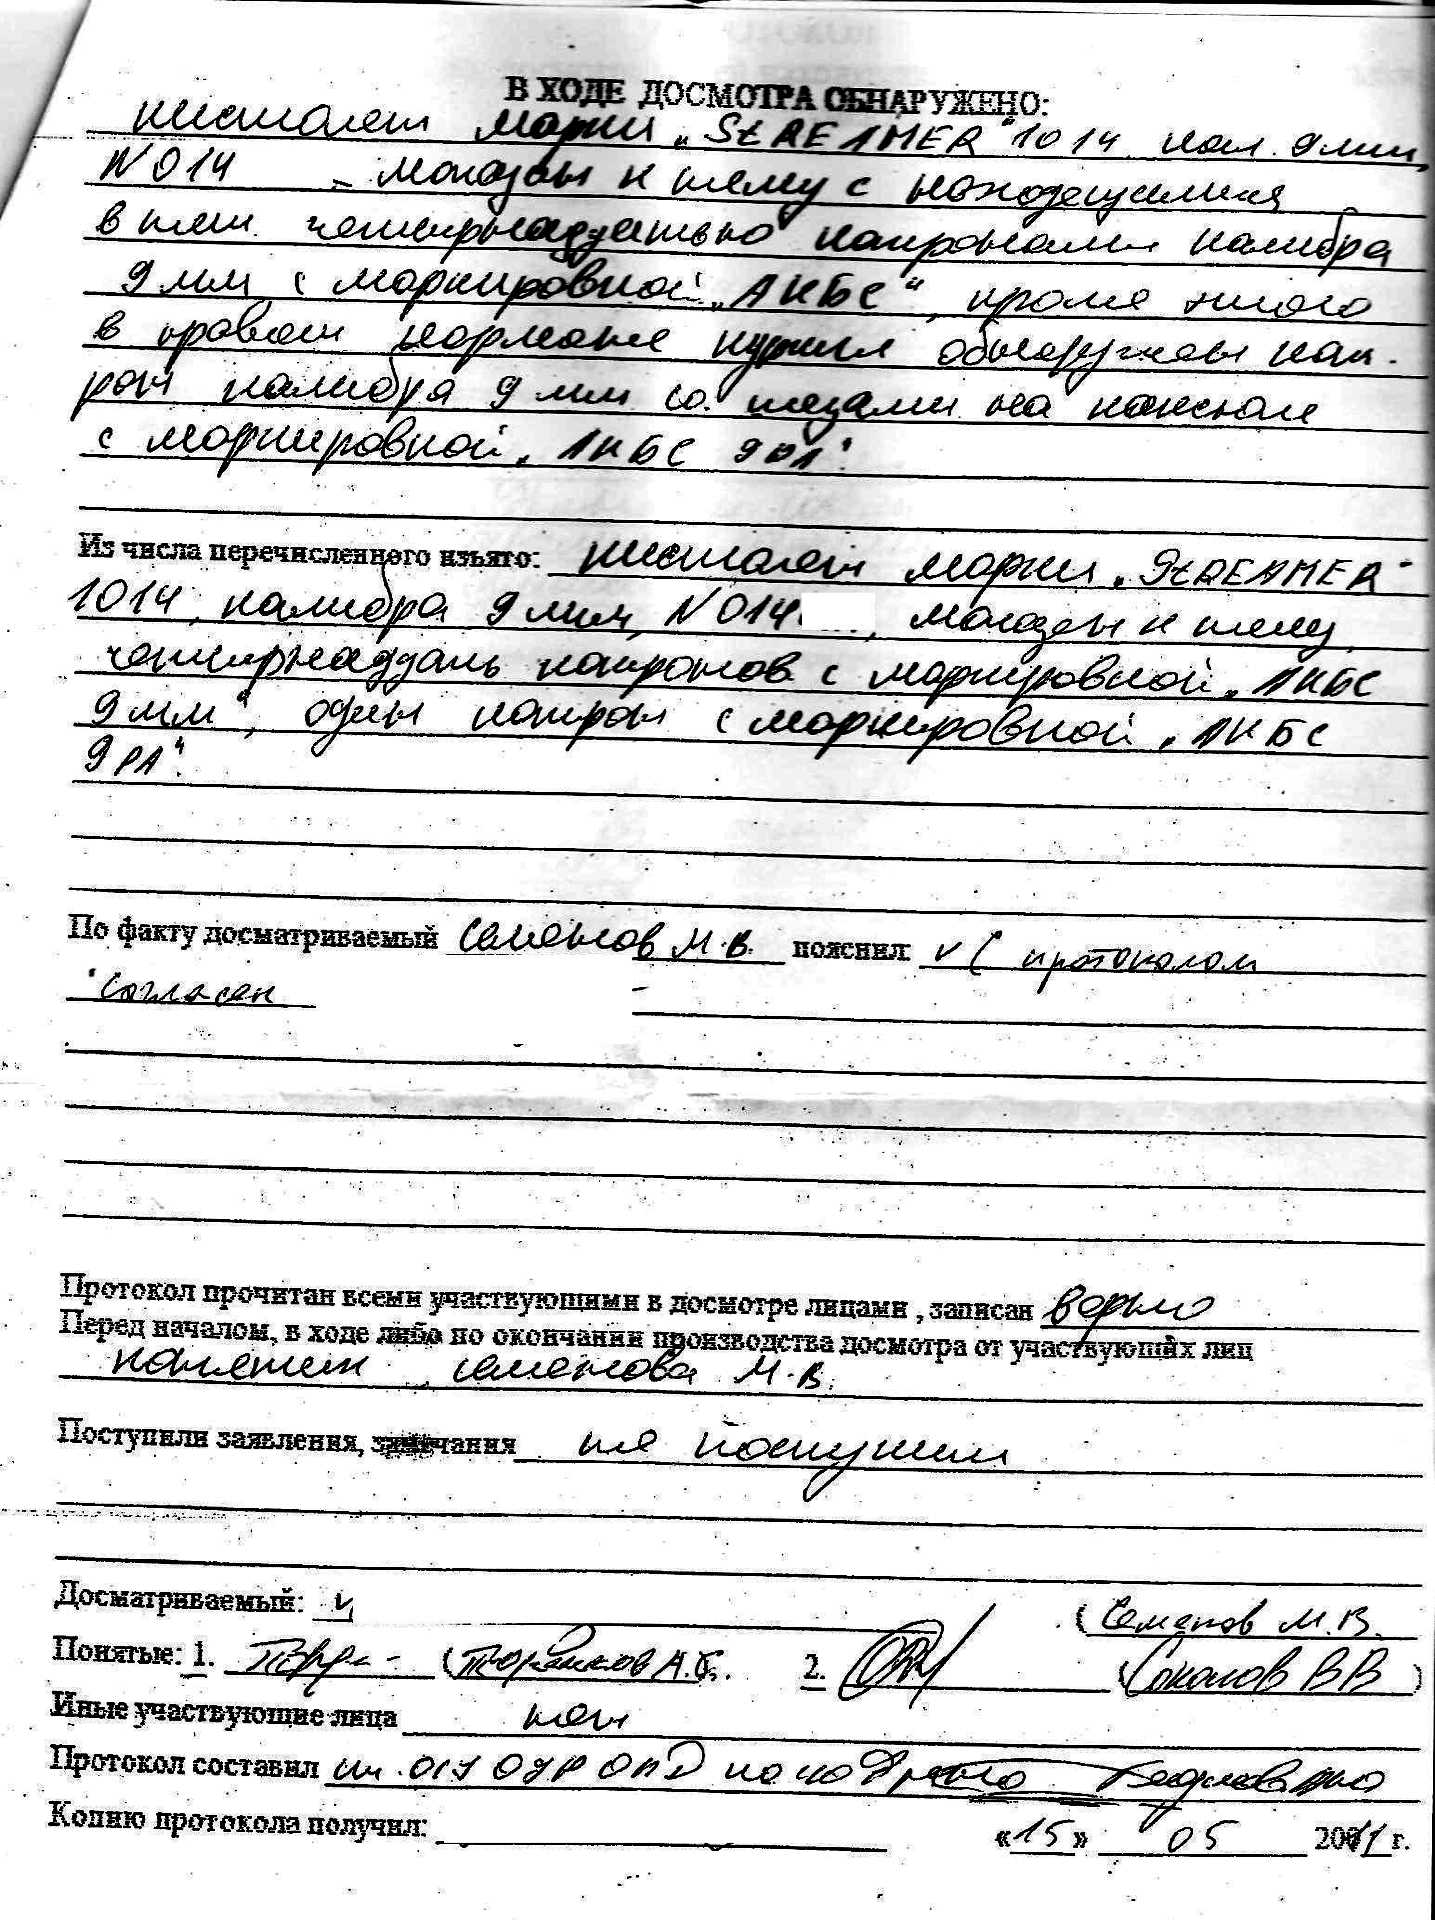 В ХОДЕ ДОСМОТРА ОБНАРУЖЕНО:
пистолет марки „StREAMER" 1014 кал. 9 мм,
N 014 - магазин к нему с находещимися
в нем четырнадцатью патронами калибра
9 мм с маркировкой „АКБС", кроме этого
в правом кармане куртки обнаружен пат-
рон калибра 9 мм со следами на капсюле
с маркировкой „АКБС 9РА".
Из числа перечисленного изъято: пистолет марки „StREAMER"
1014, калибра 9 мм, N 014 , магазин к нему,
четырнаддать патронов с маркировкой „АКБС
9 мм", один патрон с маркировкой „АКБС
9РА".
По факту досматриваемый Семенов М.В. пояснил: v С протоколом
Согласен
Протокол прочитан всеми участвующими в досмотре лицами , записан верно
Перед началом, в ходе либо по окончании производства досмотра от участвующих лиц
понятых, Семенова М.В.
Поступили заявления, замечания не поступили
Досматриваемый: v (Семенов М.В.
Понятые: 1. А.С. 2. (Соколов В В)
Иные участвующие лица нет
Протокол составил о/у ОУР ОПД по
Копию протокола получил: «15» 05 2011 г.